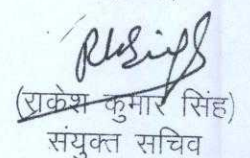 RKSingh
(राकेश कुमार सिंह)
संयुक्त सचिव